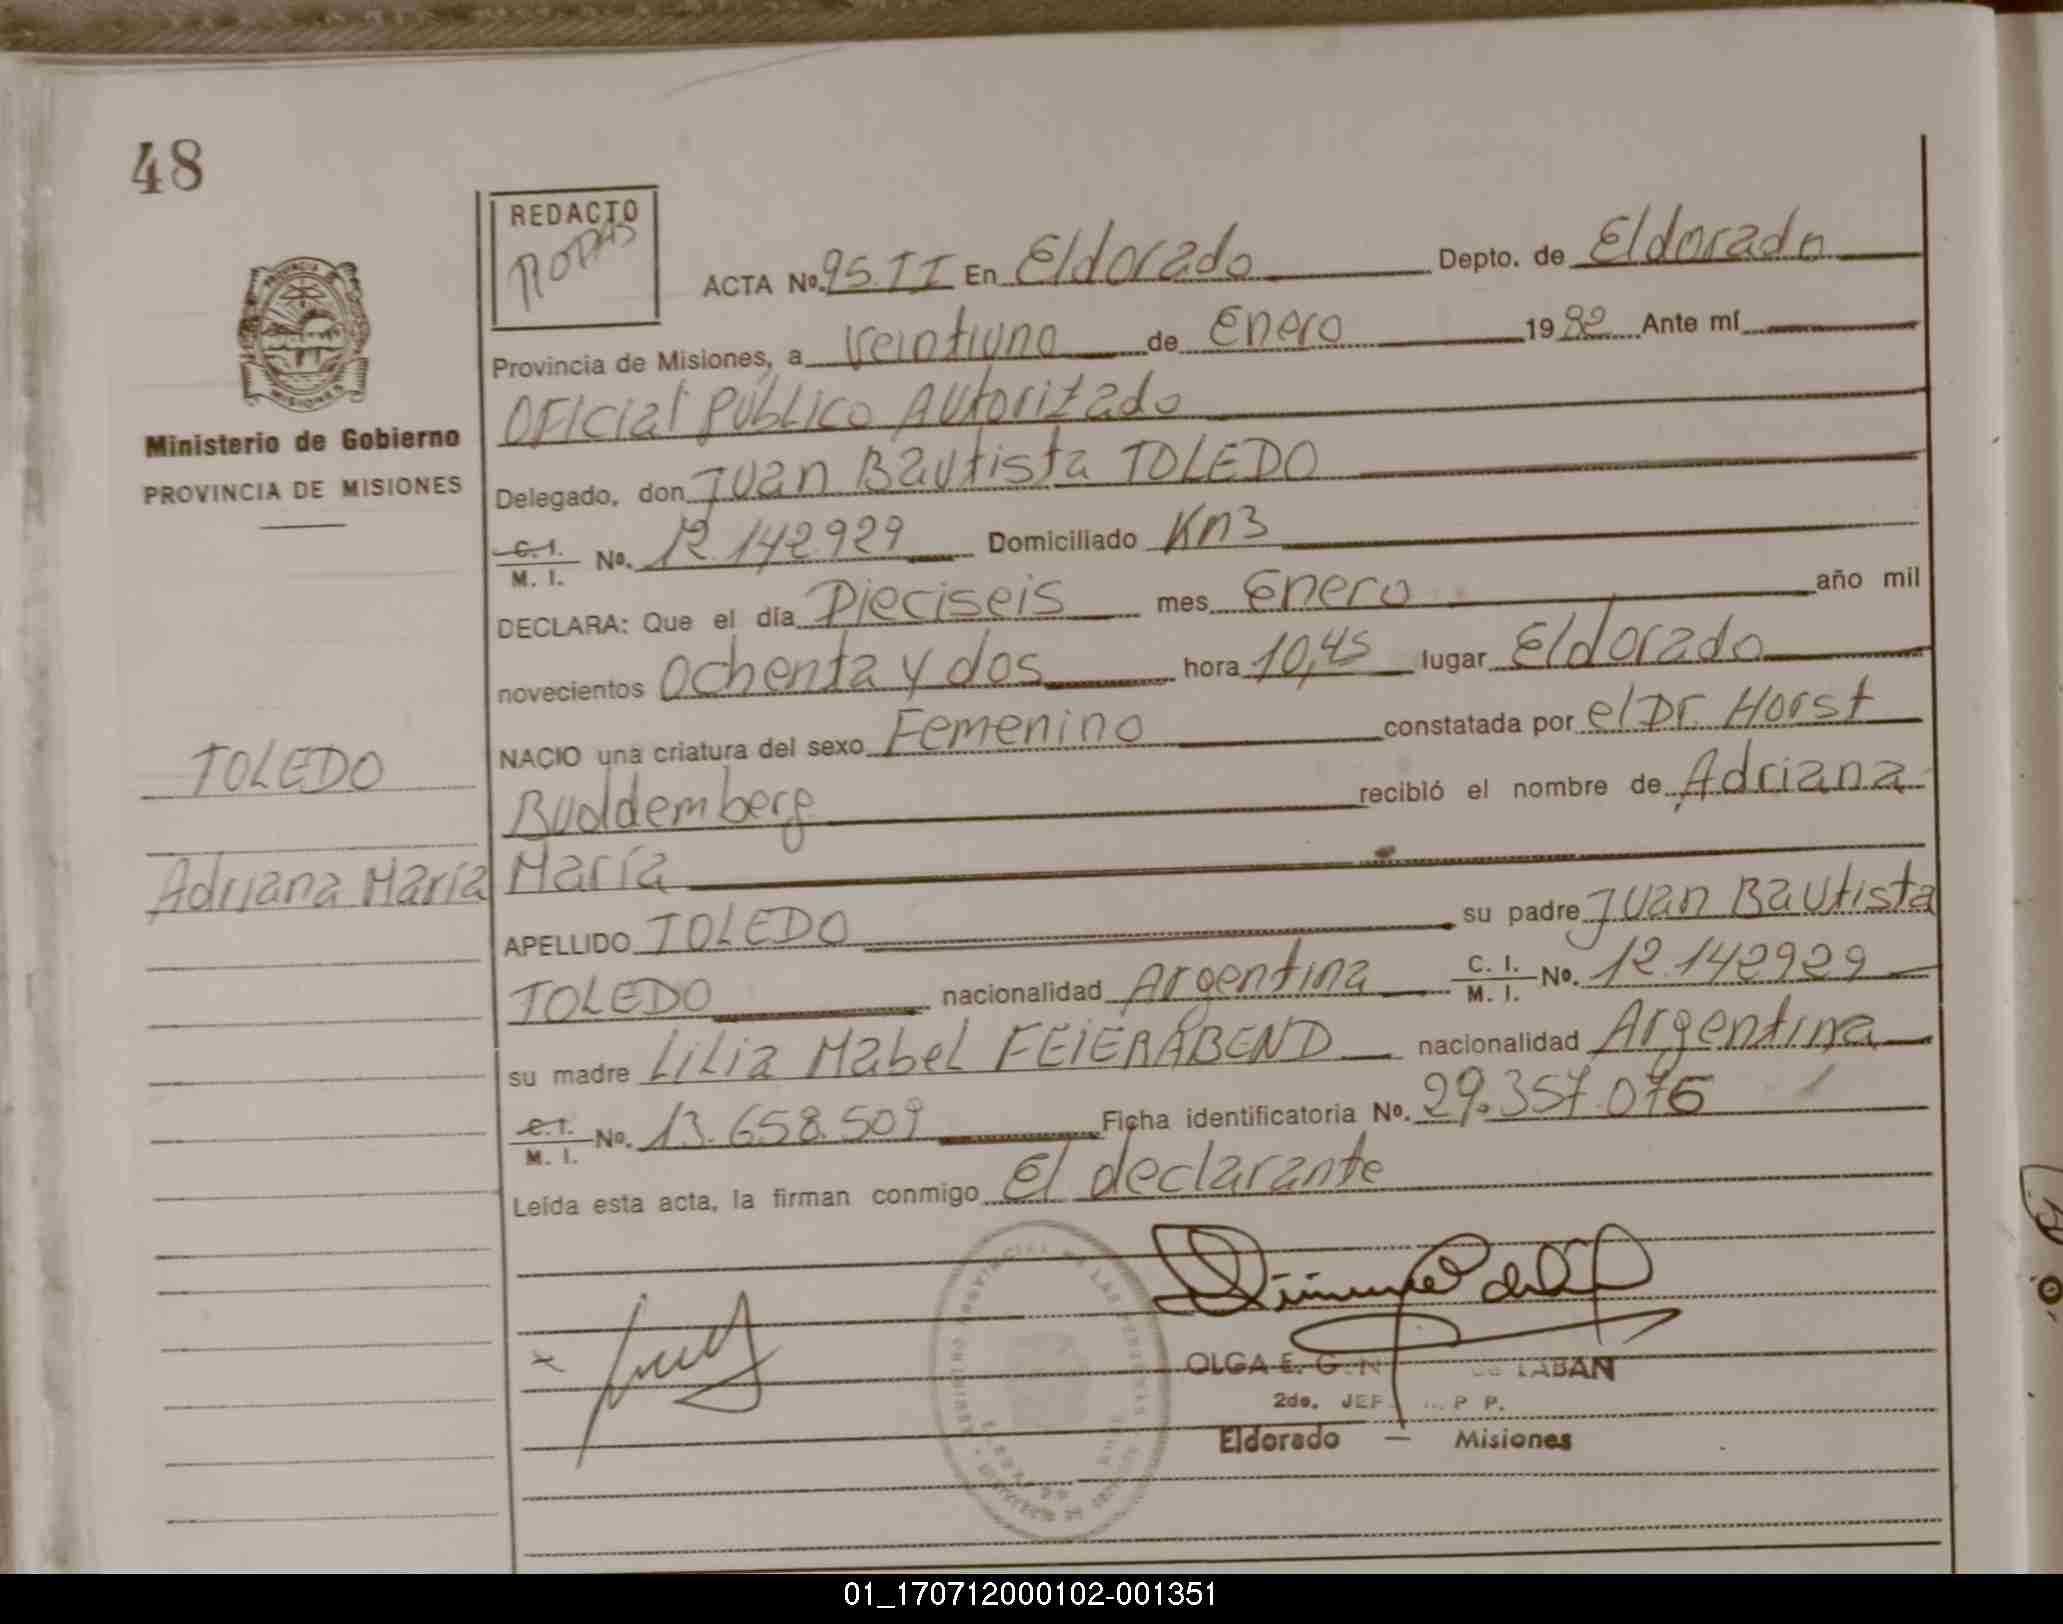 48
REDACTO
RODAS
ACTA No. 95.II En Eldorado Depto. de Eldorado
Provincia de Misiones, a Veintiuno de Enero 1982 Ante mí
Oficial Público Autorizado
Ministerio de Gobierno
PROVINCIA DE MISIONES
Delegado, don Juan Bautista TOLEDO
C. I. M. I. No. 12.142.929 Domiciliado Km3
DECLARA: Que el día Dieciseis mes Enero año mil
novecientos Ochenta y dos hora 10,45 lugar Eldorado
NACIO una criatura del sexo Femenino constatada por el Dr. Horst
TOLEDO
Buddemberg recibió el nombre de Adriana
Adriana María
María
APELLIDO TOLEDO su padre Juan Bautista
TOLEDO nacionalidad Argentina C. I. M. I. No. 12.142929
su madre Lilia Mabel FEIERABEND nacionalidad Argentina
C. I. M. I. No. 13.658.509 Ficha identificatoria No. 29.357.076
Leída esta acta, la firman conmigo El declarante
OLGA E. LABAN
2do. JEF P P.
Eldorado — Misiones
01_170712000102-001351